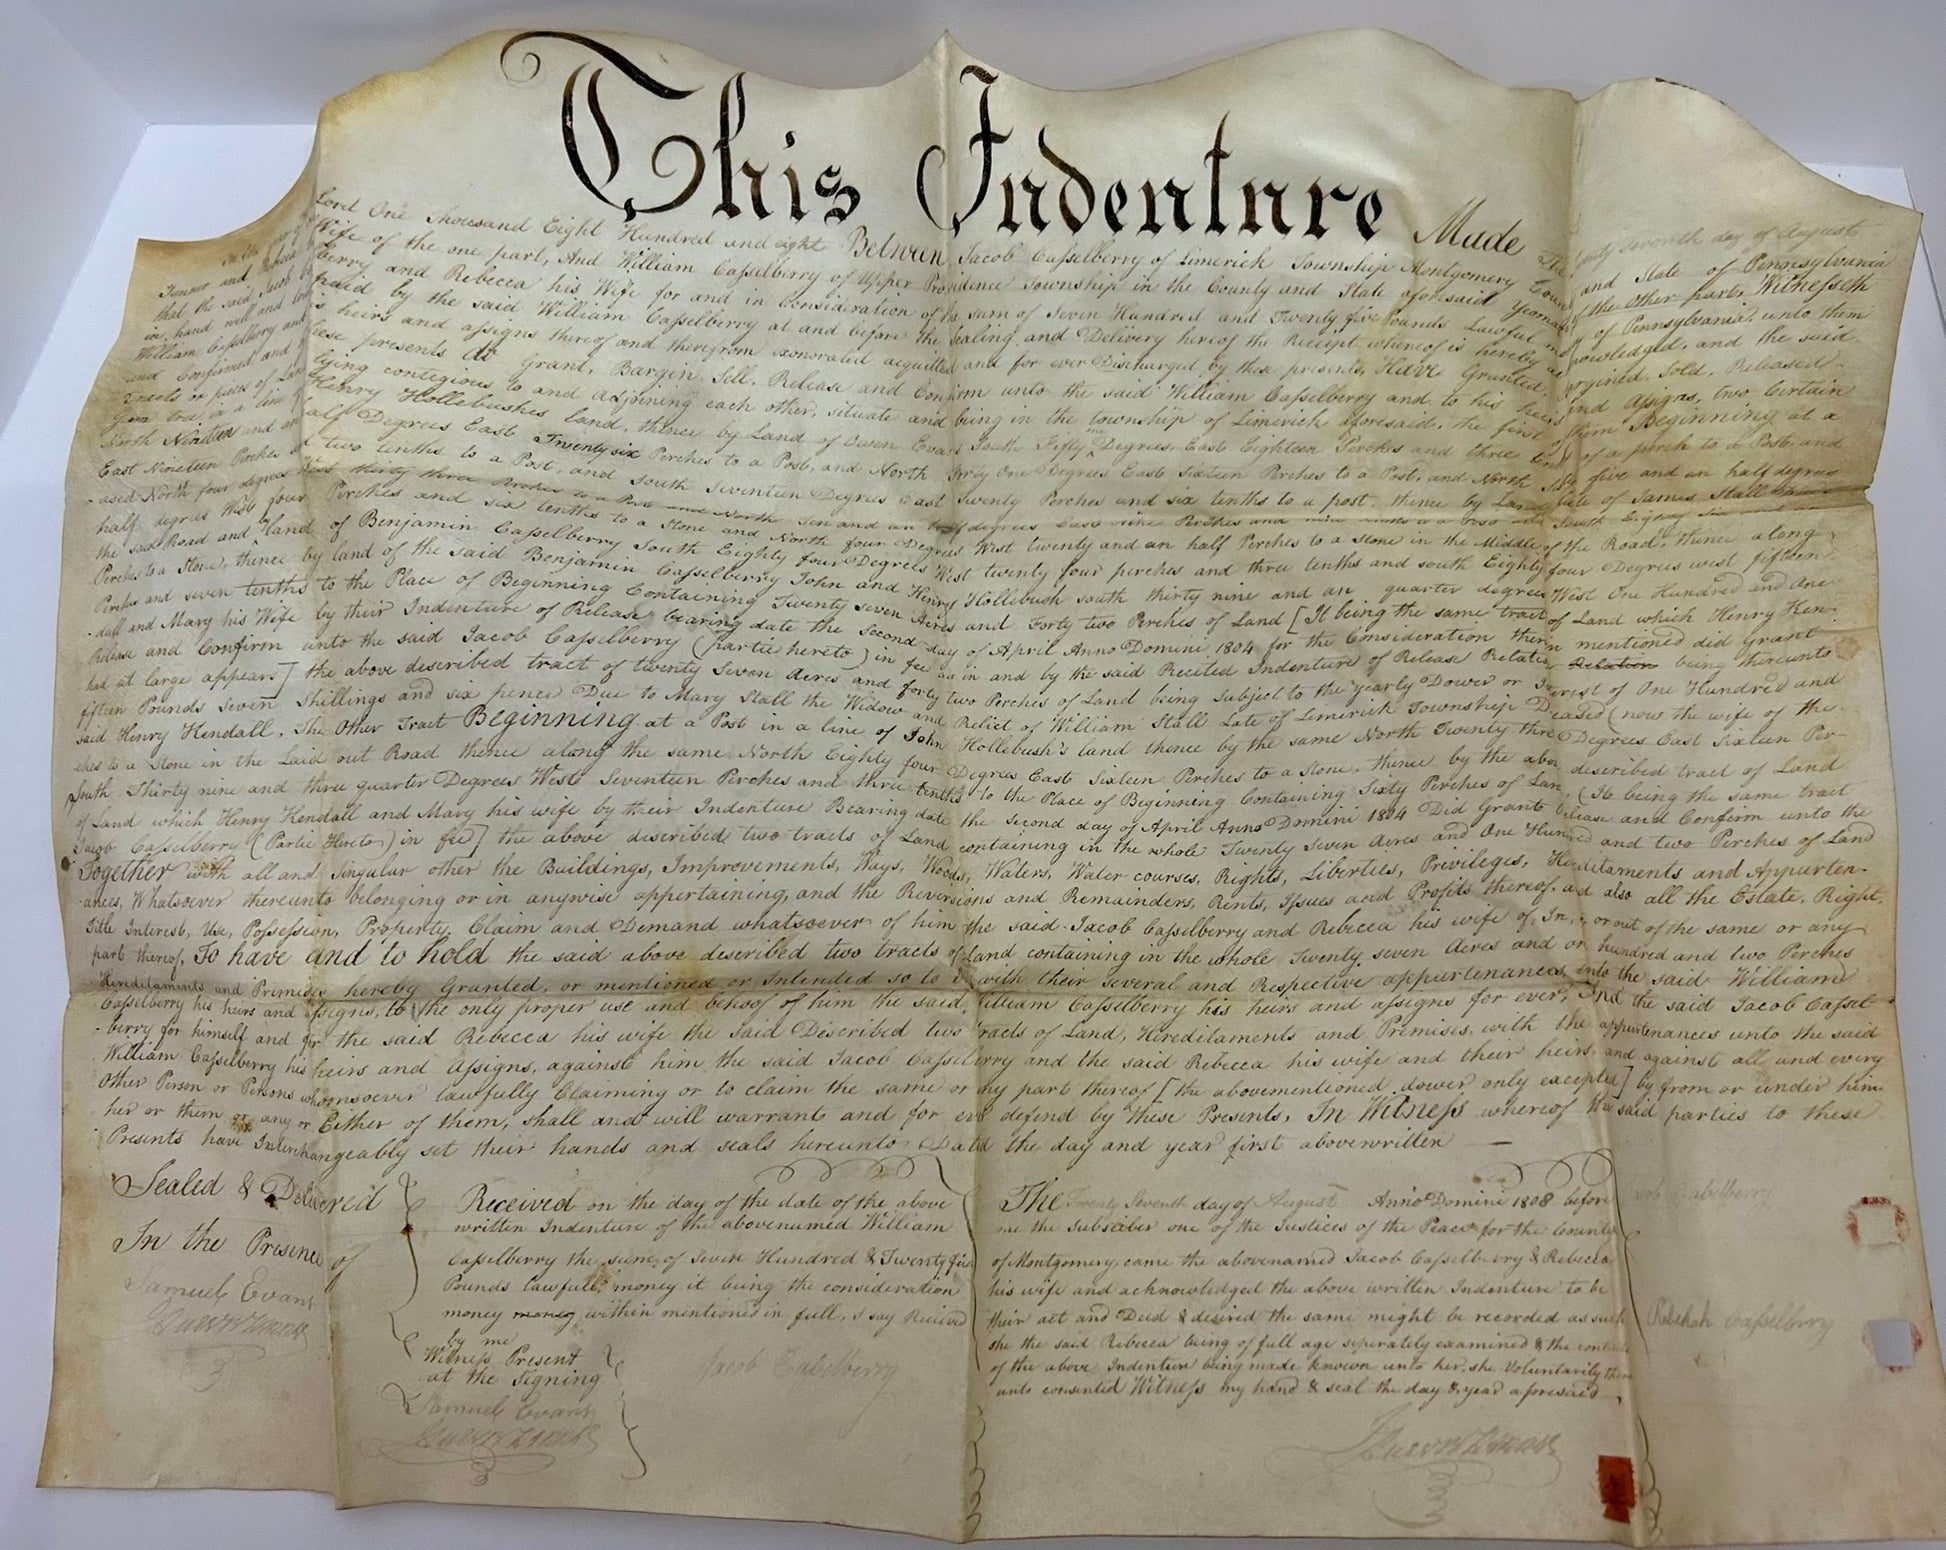 This Indenture Made The Twenty Seventh day of August
in the year of Lord One Thousand Eight Hundred and eight Between Jacob Casselberry of Limerick Township Montgomery County and State of Pennsylvania
and Rebecca Wife of the one part, And William Casselberry of Upper Providence Township in the County and State aforesaid Yeoman of the other part, Witnesseth
that the said Jacob Casselberry and Rebecca his Wife for and in Consideration of the sum of Seven Hundred and Twenty five Pounds Lawful of Pennsylvania, unto them
in hand well and paid by the said William Casselberry at and before the Sealing and Delivery hereof the Receipt whereof is hereby acknowledged, and the said
William Casselberry and his heirs and assigns thereof and therefrom exonorated acquitted and for ever Discharged by these presents, Have Granted, Bargined, Sold, Released
and Confirmed and these presents do Grant, Bargin, Sell, Release and Confirm unto the said William Casselberry and to his heirs and Assigns, two Certain
tracts or pieces of Land lying contegious to and adjoining each other, situate and being in the township of Limerick aforesaid, the first of them Beginning at a
Gum tree in a line Henry Hollebushes land, thence by Land of Owen Evans South Fifty Degrees, East Eighteen Perches and three tenths of a perch to a Post, and
North Nineteen and an half Degrees East Twenty six Perches to a Post, and North Degrees East Sixteen Perches to a Post, and North five and an half degrees
East Nineteen Perches and two tenths to a Post, and South Seventeen Degrees East Twenty Perches and six tenths to a post, thence by Land late of James Stall
North four degrees West thirty three Perches to a Post and North Ten and an half degrees East nine Perches and
half degrees West four Perches and six tenths to a Stone and North four Degrees West twenty and an half Perches to a Stone in the Middle of the Road, thence along
the said Road and Land of Benjamin Casselberry South Eighty four Degrees West twenty four perches and three tenths and south Eighty four Degrees west fifteen
Perches to a Stone, thence by land of the said Benjamin Casselberry John and Henry Hollebush south thirty nine and an quarter degrees West One Hundred and One
Perches and seven tenths to the Place of Beginning Containing Twenty seven Acres and Forty two Perches of Land [It being the same tract of Land which Henry Ken-
-dall and Mary his Wife by their Indenture of Release bearing date the Second day of April Anno Domini 1804 for the Consideration therein mentioned did Grant
Release and Confirm unto the said Jacob Casselberry (partie hereto) in fee as in and by the said Recited Indenture of Release Relation being thereunto
had at large appears] the above described tract of twenty Seven Acres and forty two Perches of Land being Subject to the yearly Dower or Interest of One Hundred and
fifteen Pounds Seven Shillings and six pence Due to Mary Stall the Widow and Relict of William Stall Late of Limerick Township Deceased (now the wife of the
said Henry Kendall. The Other Tract Beginning at a Post in a line of John Hollebush's land thence by the same North Twenty three Degrees East Sixteen Per-
-ches to a Stone in the Laid out Road thence along the same North Eighty four Degrees East Sixteen Perches to a Stone, thence by the above described tract of Land
South Thirty nine and three quarter Degrees West Seventeen Perches and three tenths to the Place of Beginning Containing Sixty Perches of Land, (It being the same tract
of Land which Henry Kendall and Mary his wife by their Indenture Bearing date the Second day of April Anno Domini 1804 Did Grant Release and Confirm unto the
Jacob Casselberry (Partie Hereto) in fee] the above described two tracts of Land containing in the whole Twenty Seven Acres and One Hundred and two Perches of Land
Together with all and Singular other the Buildings, Improvements, Ways, Woods, Waters, Water courses, Rights, Liberties, Privileges, Hereditaments and Appurten-
-ances, Whatsoever thereunto belonging or in anywise appertaining, and the Reversions and Remainders, Rents, Issues and Profits thereof, and also all the Estate, Right,
Title Interest, Use, Possession, Property, Claim and Demand whatsoever of him the said Jacob Casselberry and Rebecca his wife of, In, or out of the same or any
part thereof, To have and to hold the said above described two tracts of Land containing in the whole Twenty seven Acres and one hundred and two Perches
Hereditaments and Premises hereby Granted, or mentioned or Intended so to be with their several and Respective appurtenances unto the said William
Casselberry his heirs and assigns, to the only proper use and behoof of him the said William Casselberry his heirs and assigns for ever, And the said Jacob Cassel-
-berry for himself and for the said Rebecca his wife the said Described two Tracts of Land, Hereditaments and Premises, with the appurtenances unto the said
William Casselberry his heirs and Assigns, against him the said Jacob Casselberry and the said Rebecca his wife and their heirs, and against all and every
Other Person or Persons whomsoever lawfully Claiming or to claim the same or any part thereof [the abovementioned dower only excepted] by from or under him
her or them or any or Either of them, Shall and will warrant and for ever defend by These Presents, In Witness whereof the said parties to these
Presents have Interchangeably set their hands and seals hereunto Dated the day and year first abovewritten
Sealed & Delivered
In the Presence of
Samuel Evans
Received on the day of the date of the above
written Indenture of the abovenamed William
Casselberry the sum of Seven Hundred & Twenty five
Pounds lawfull money it being the consideration
money money within mentioned in full, I say Received
by me
Witness Present
at the Signing
Jacob Casselberry
Samuel Evans
The Twenty Seventh day of August Anno Domini 1808 before
me the Subsciber one of the Justices of the Peace for the County
of Montgomery, came the abovenamed Jacob Casselberry & Rebecca
his wife and acknowledged the above written Indenture to be
their act and Deed & desired the same might be recorded as such
she the said Rebecca being of full age seperately examined & the contents
of the above Indenture being made known unto her, she Voluntarily there
unto consented Witness my hand & seal the day & year aforesaid
Jacob Casselberry
Rebekah Casselberry